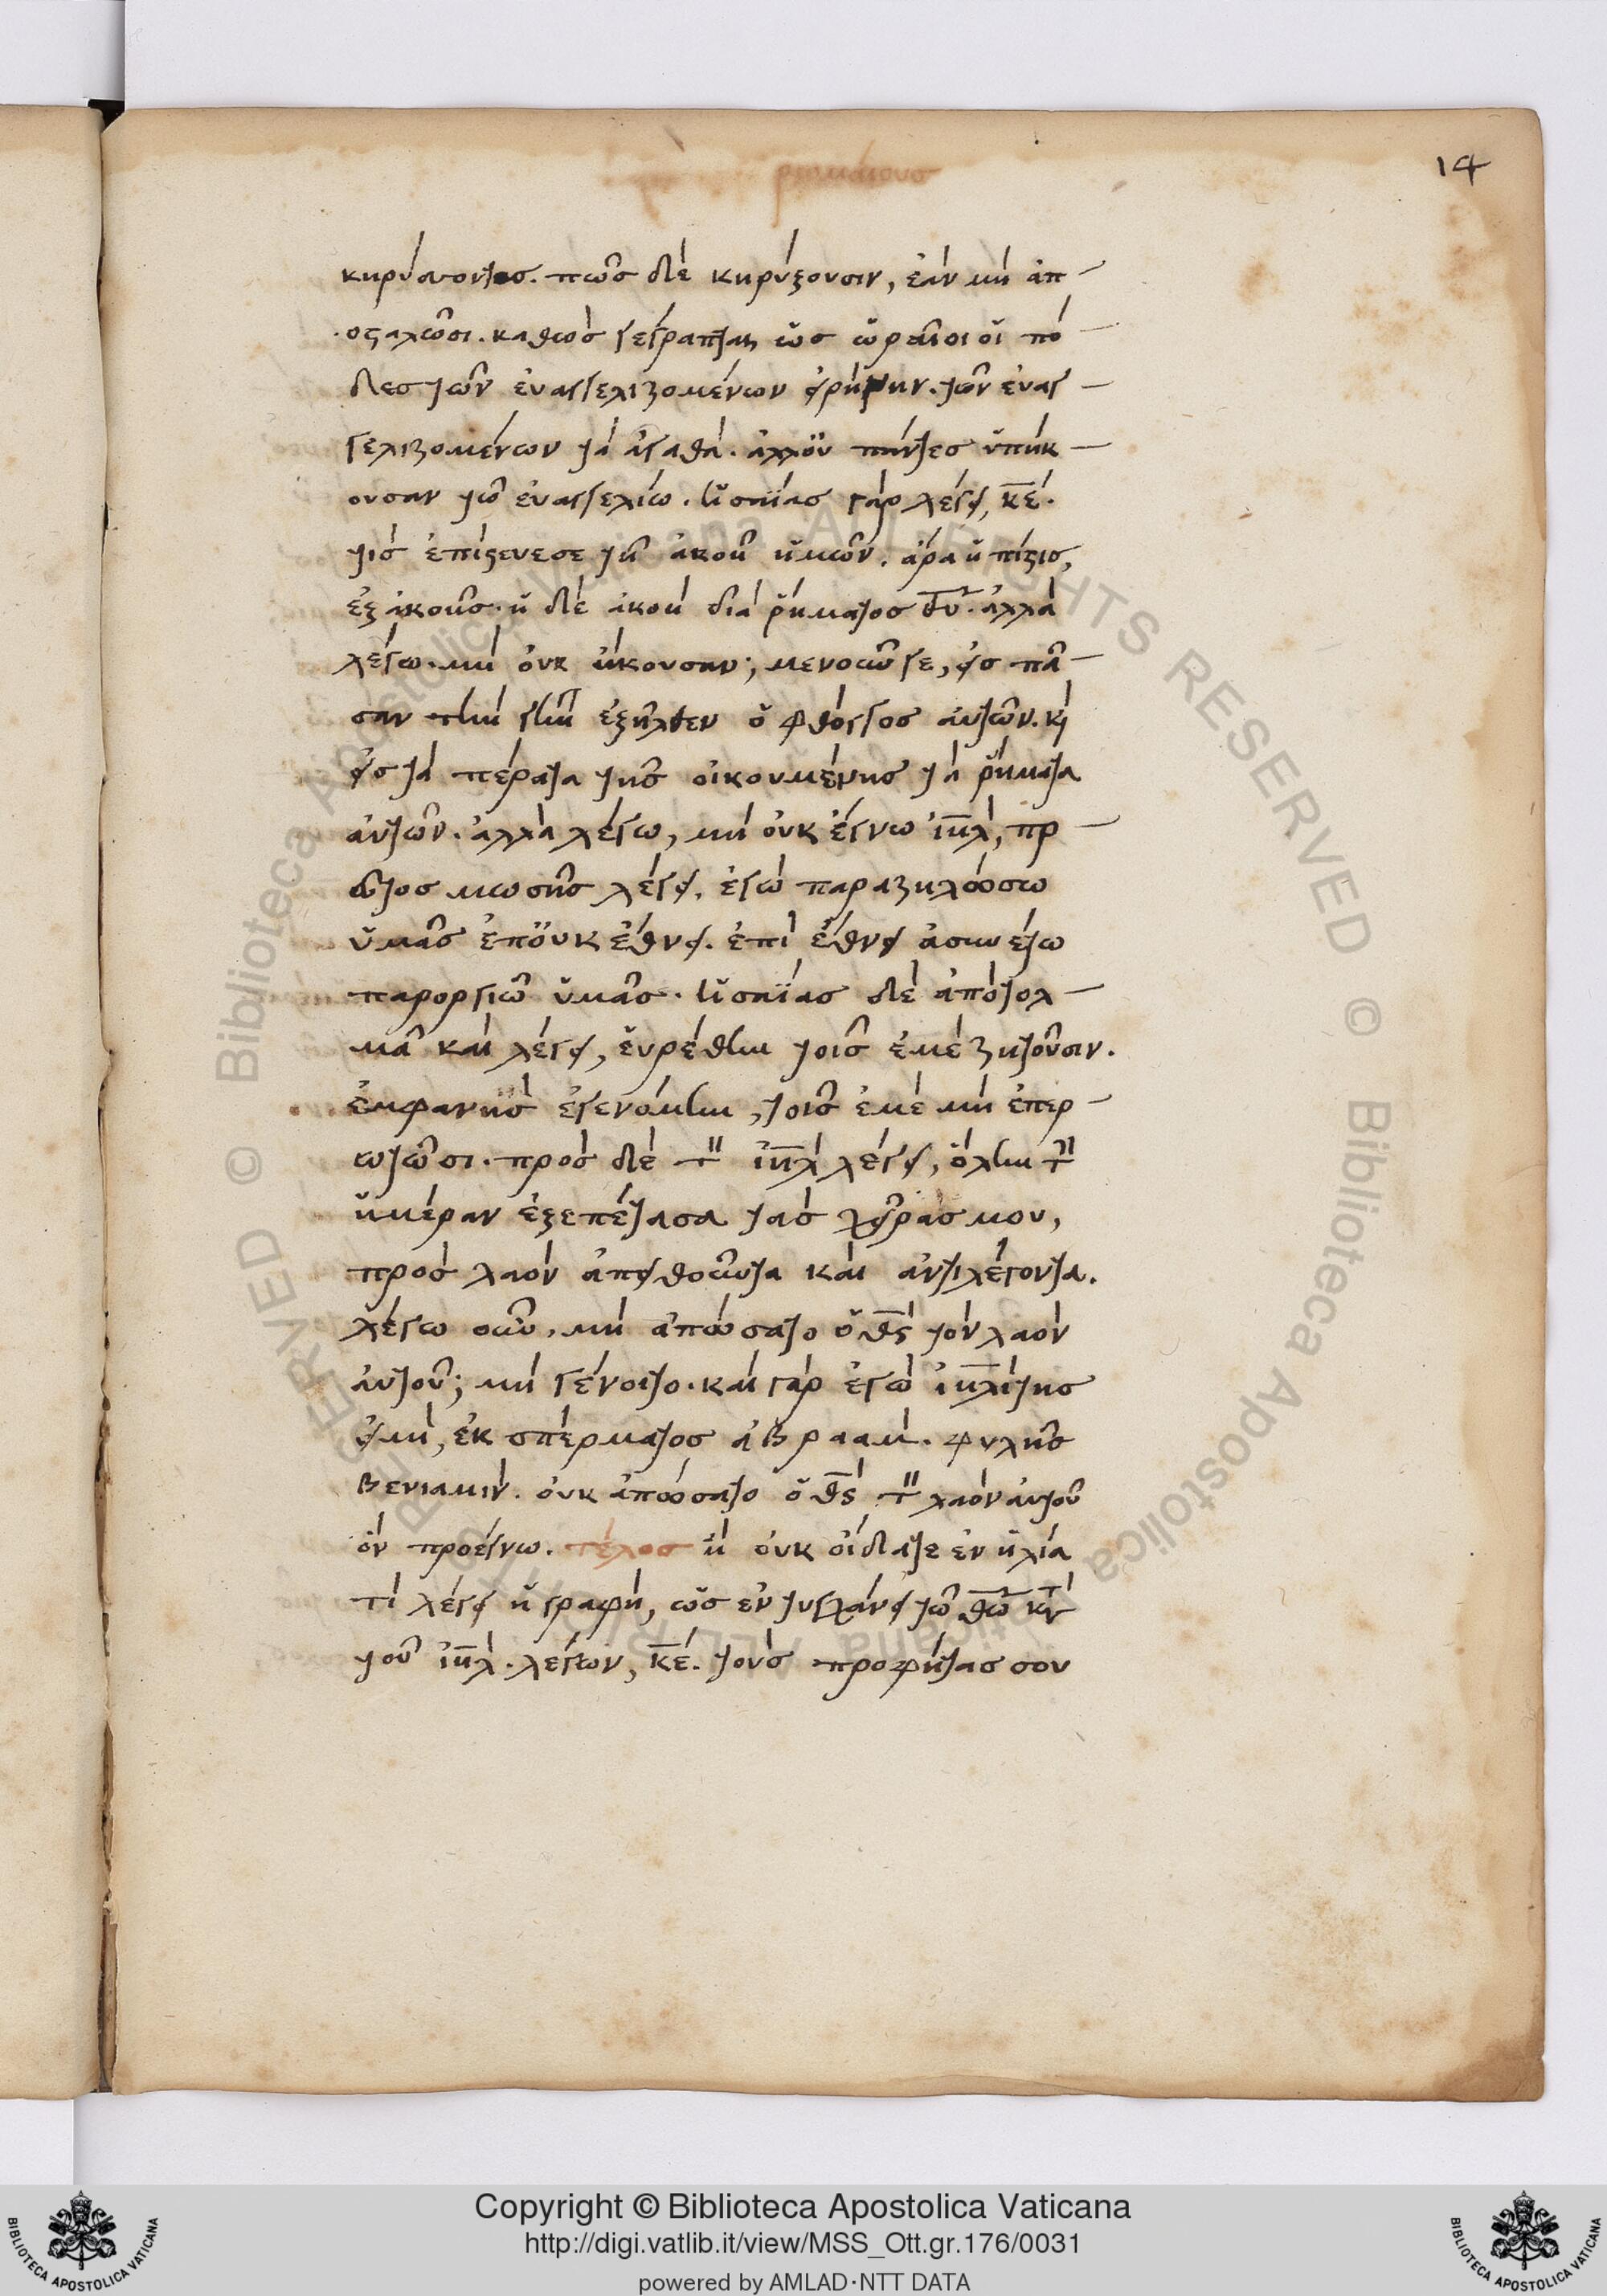 14
ρωμαίους
κηρύσσοντος. πῶς δὲ κηρύξουσιν, ἐὰν μὴ ἀπ
οσταλῶσι. καθὼς γέγραπται ὡς ὡραῖοι οἱ πό
δες τῶν ἐυαγγελιζομένων εἰρήνην. τῶν ἐυαγ
γελιζομένων τὰ ἀγαθά. ἀλλοῦ πάντες ὑπήκ
ουσαν τῶ ἐυαγγελίω. ἡσαΐας γὰρ λέγει, κ̅ε̅.
τίς ἐπίστευσε τῆ ἀκοῆ ἡμῶν. ἄρα ἡ πίστις,
ἐξ ἀκοῆς. ἡ δὲ ἀκοὴ διὰ ῥήματος θ̅υ̅. ἀλλὰ
λέγω. μὴ οὐκ ἤκουσαν; μενοῦνγε, εἰς πᾶ
σαν τὴν γῆν ἐξῆλθεν ὁ φθόγγος αὐτῶν. κὶ
εἰς τὰ πέρατα τῆς οἰκουμένης τὰ ῥήματα
αὐτῶν. ἀλλὰ λέγω, μὴ οὐκ ἔγνω ἰ̅η̅λ̅, πρ
ῶτος μωσῆς λέγει. ἐγὼ παραζηλώσω
ὑμᾶς ἐπ οὐκ ἔθνει. ἐπὶ ἔθνει ἀσυνέτω
παροργιῶ ὑμᾶς. ἡσαΐας δὲ ἀποτολ
μᾶ καὶ λέγει, εὑρέθην τοῖς ἐμὲ ζητοῦσιν.
ἐμφανὴς ἐγενόμην, τοῖς ἐμὲ μὴ ἐπερ
ωτῶσι. πρὸς δὲ τὸν ἰ̅η̅λ̅ λέγει, ὅλην τὴν
ἡμέραν ἐξεπέτασα τὰς χεῖρας μου,
πρὸς λαὸν ἀπειθοῦντα καὶ ἀντιλέγοντα.
λέγω οὖν. μὴ ἀπώσατο ὁ θ̅ς̅ τὸν λαὸν
αὐτοῦ; μὴ γένοιτο. καὶ γὰρ ἐγὼ ἰ̅η̅λ̅ίτης
εἰμὶ, ἐκ σπέρματος ἀβραάμ. φυλῆς
βενιαμίν. οὐκ ἀπώσατο ὁ θ̅ς̅ τὸν λαὸν αὐτοῦ
ὃν προέγνω. τέλος ἢ οὐκ οἴδατε ἐν ἡλία
τί λέγει ἡ γραφὴ, ὡς ἐντυγχάνει τῶ θ̅ω̅ κ̅τ̅
τοῦ ἰ̅η̅λ̅. λέγων, κ̅ε̅. τοὺς προφήτας σου
© Biblioteca Apostolica Vaticana ALL RIGHTS RESERVED © Biblioteca Apostolica Vaticana ALL RIGHTS RESERVED
Copyright © Biblioteca Apostolica Vaticana
http://digi.vatlib.it/view/MSS_Ott.gr.176/0031
powered by AMLAD·NTT DATA
BIBLIOTECA APOSTOLICA VATICANA
BIBLIOTECA APOSTOLICA VATICANA